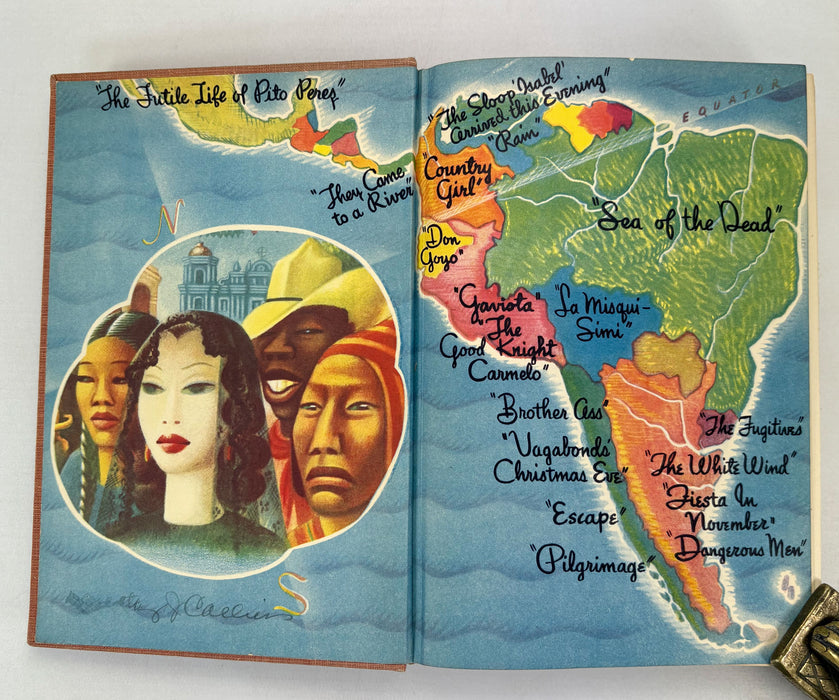 "The Futile Life of Pito Perez"
"They Came
to a River"
N
S
J Collins
"The Sloop 'Isabel'
Arrived this Evening"
"Rain"
EQUATOR
"Country
Girl"
"Sea of the Dead"
"Don
Goyo"
"Gaviota"
"The
Good Knight
Carmelo"
"La Misqui-
Simi"
"Brother Ass"
"The Fugitives"
"Vagabonds'
Christmas Eve"
"The White Wind"
"Escape"
"Fiesta In
November"
"Pilgrimage"
"Dangerous Men"